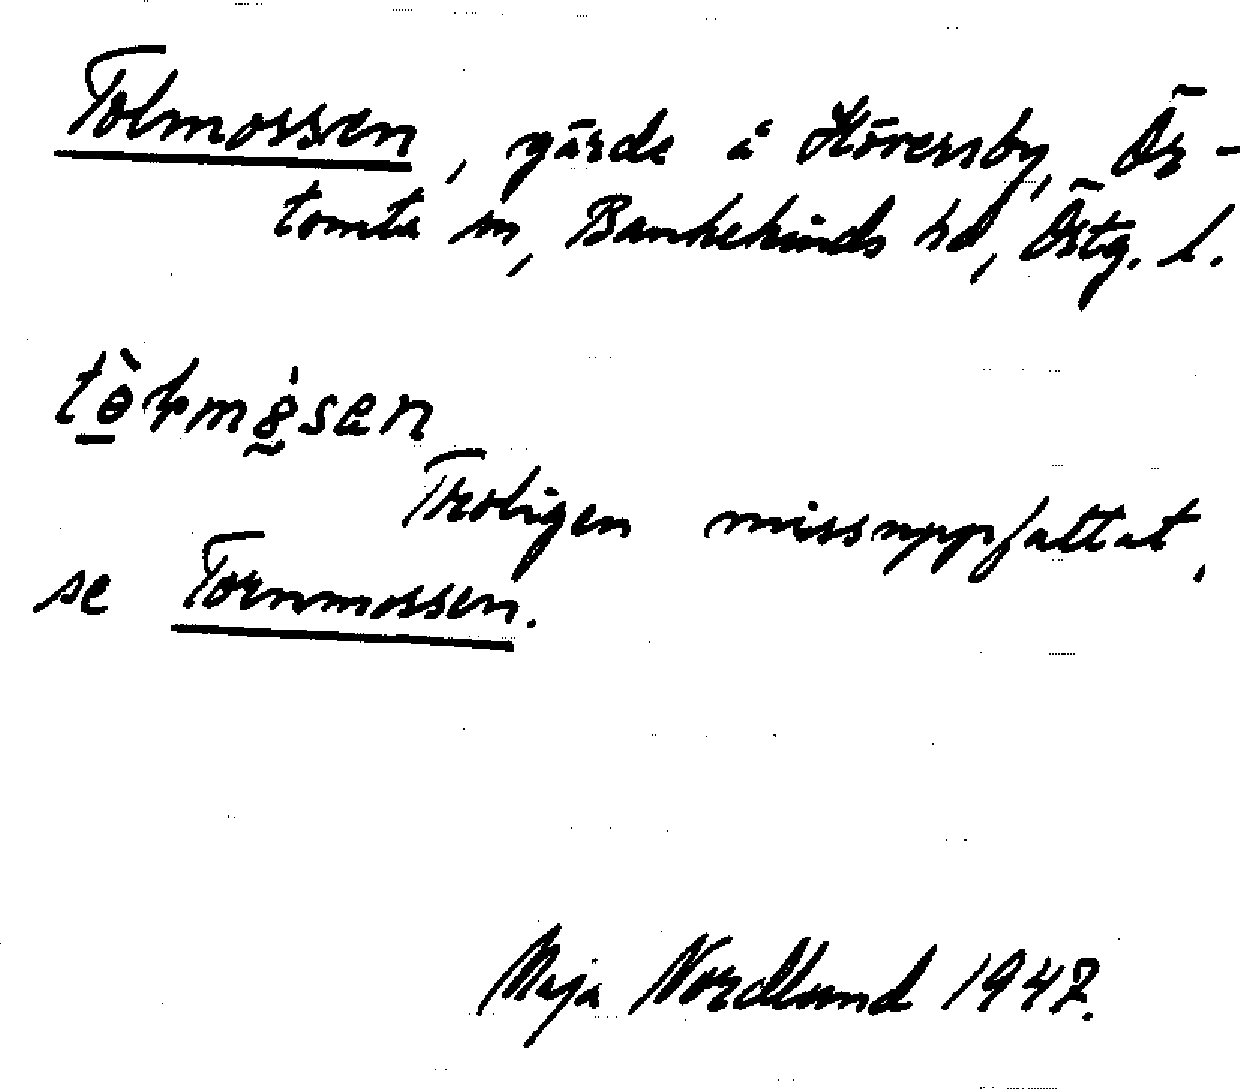 Tolmossen, gärde å Höversby, Ös-
tomta sn, Bankekinds hd, Östg. l.
Troligen missuppfattat,
se Tornmossen.
Maja Nordlund 1947.